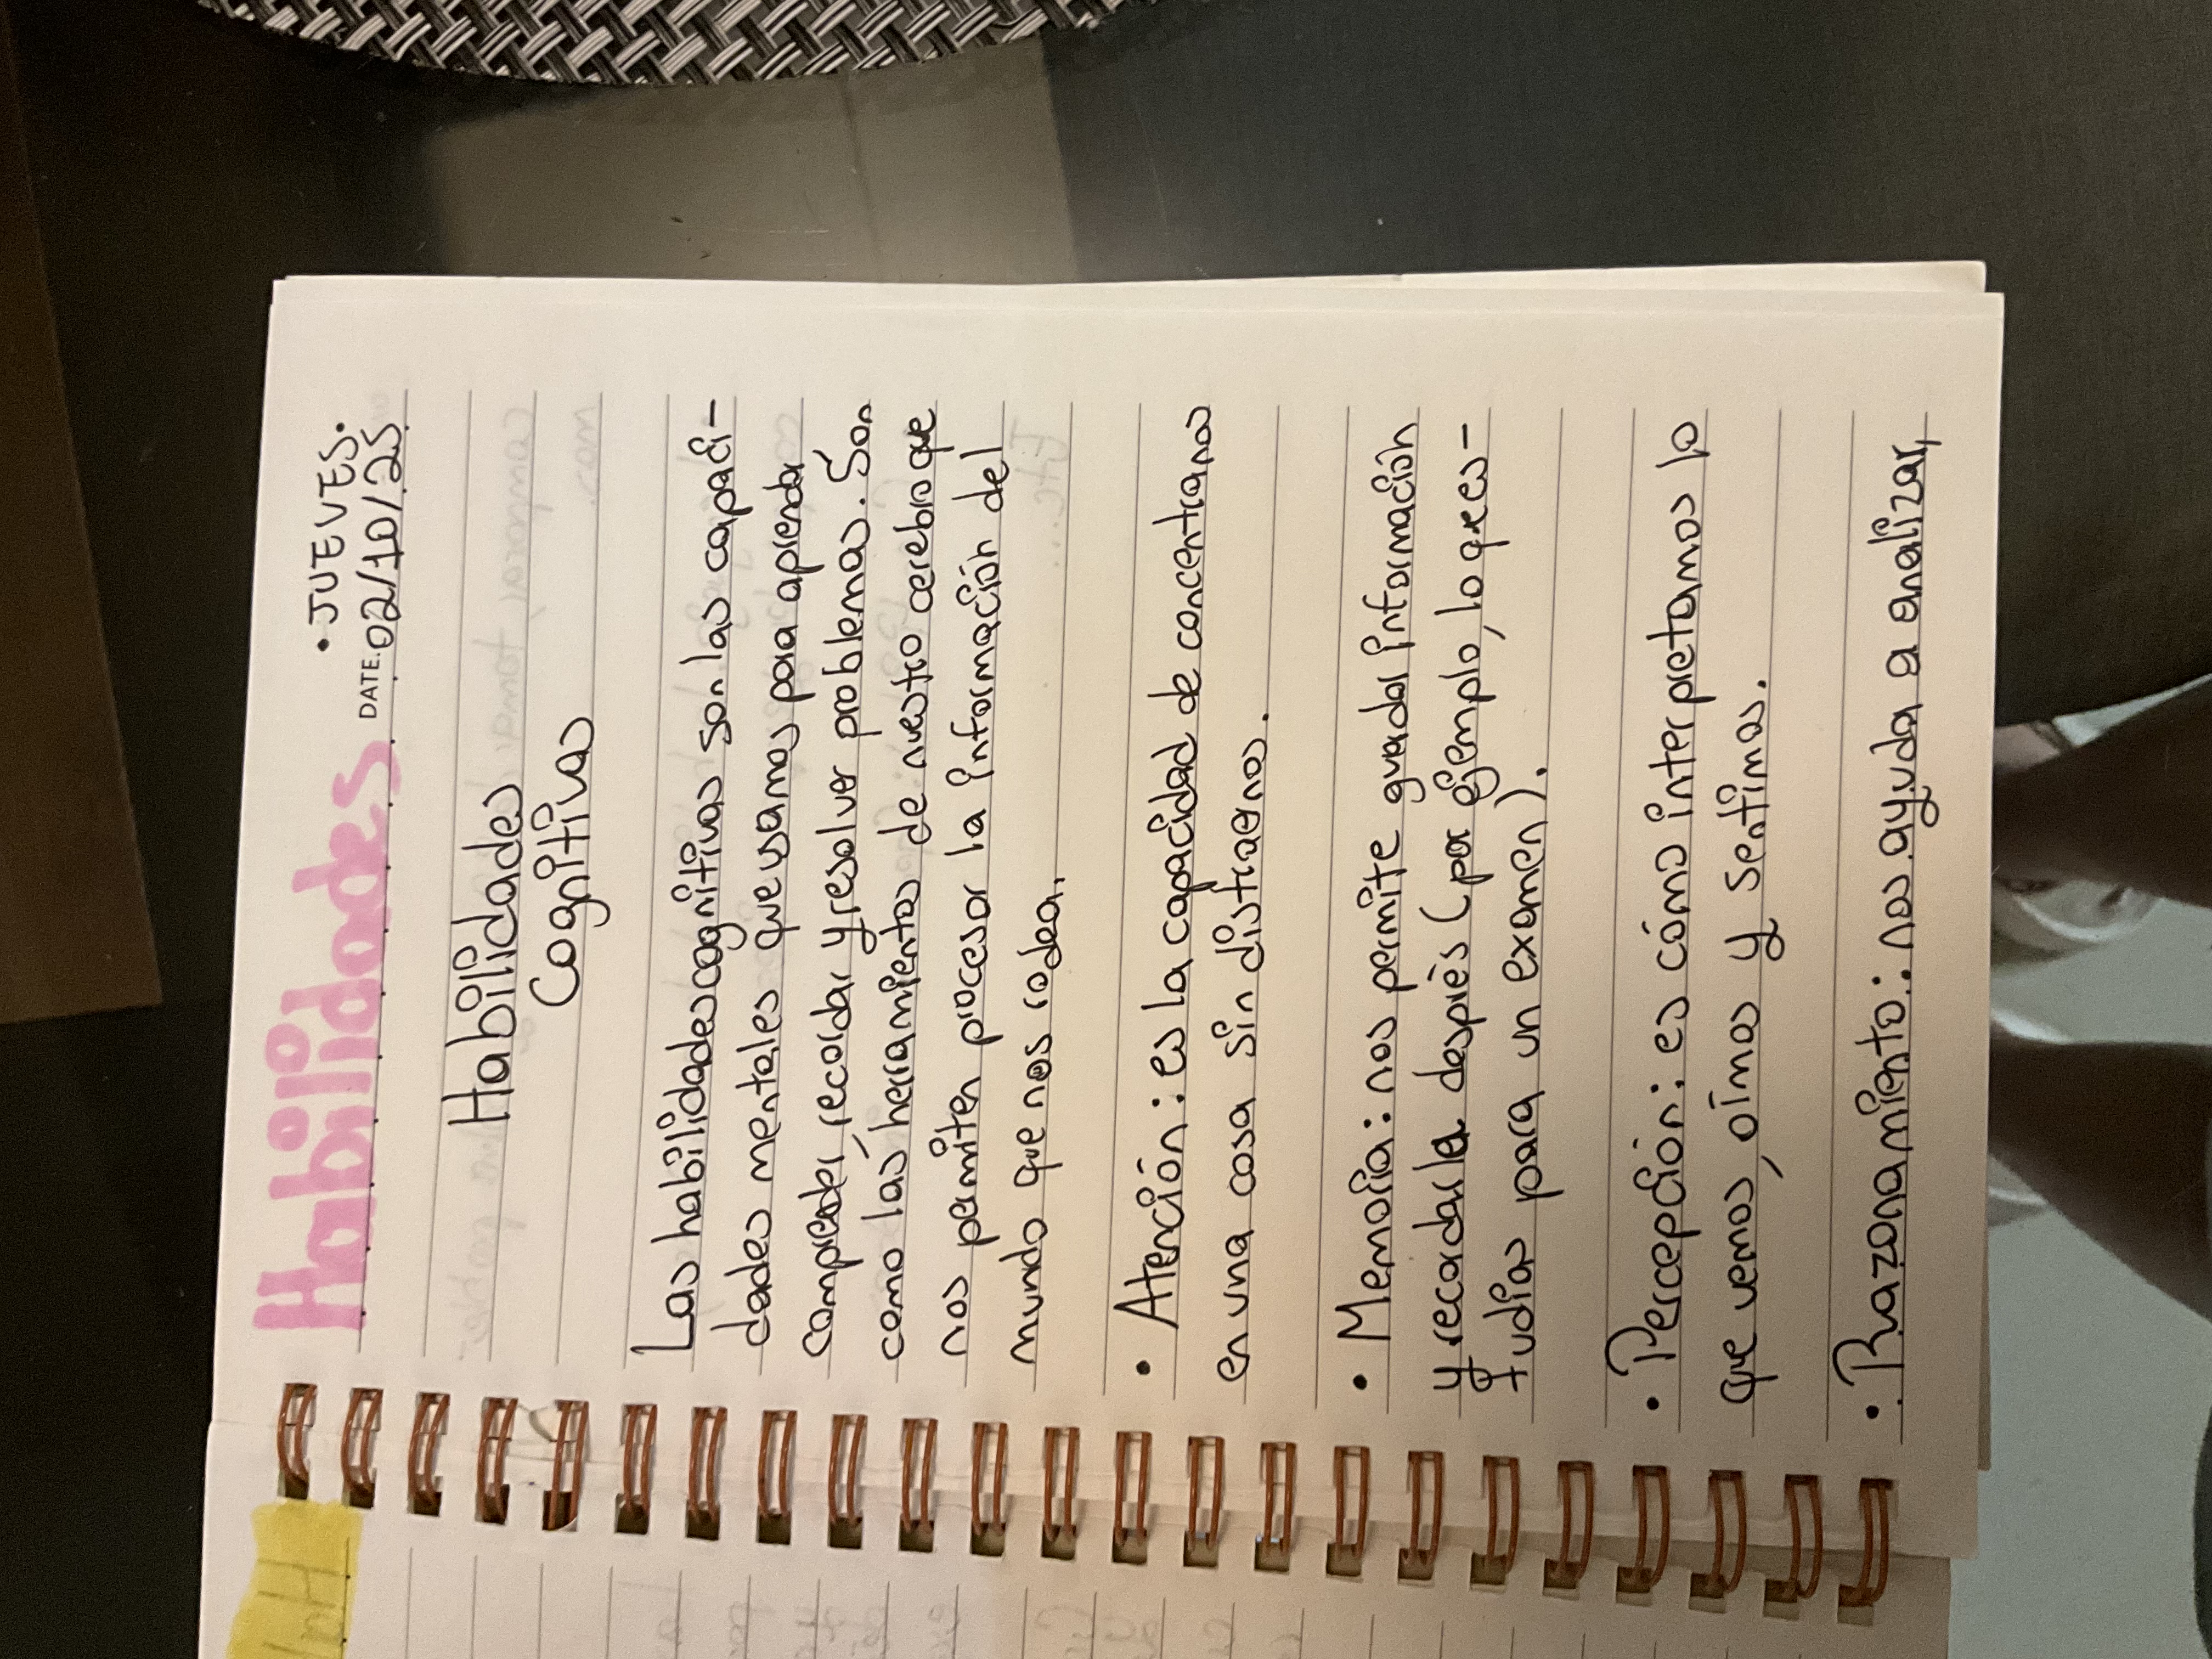 Habilidades
• JUEVES •
DATE. 02/10/25
Habilidades
Cognitivas
Las habilidades cognitivas son las capaci-
dades mentales que usamos para aprender
comprender, recordar y resolver problemas. Son
como las herramientas de nuestro cerebro que
nos permiten procesar la información del
mundo que nos rodea.
• Atención: es la capacidad de concentrarnos
en una cosa sin distraernos.
• Memoria: nos permite guardar información
y recordarla después (por ejemplo, lo que es-
tudias para un examen).
• Percepción: es cómo interpretamos lo
que vemos, oímos y sentimos.
• Razonamiento: nos ayuda a analizar,